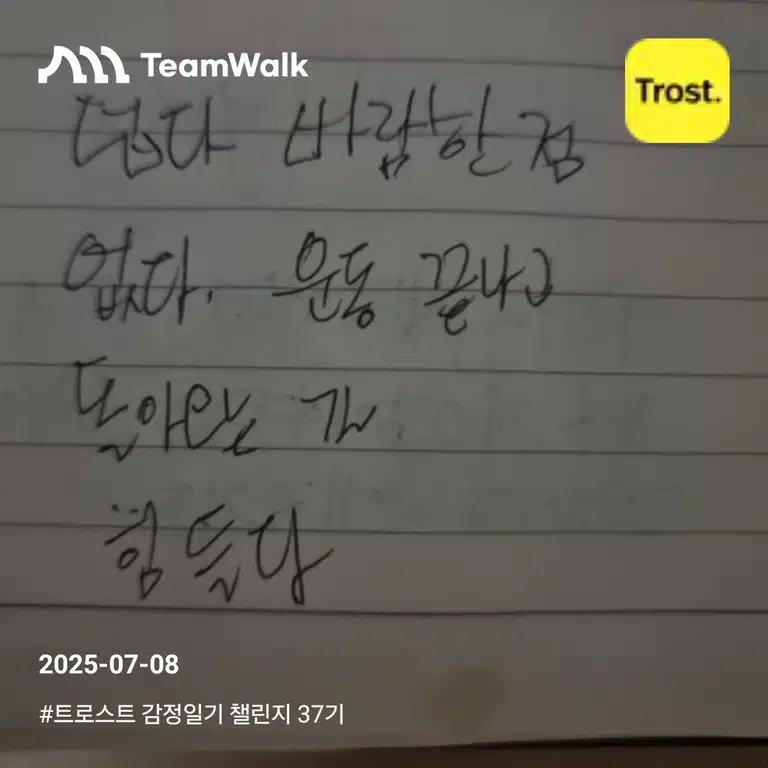 TeamWalk
Trost.
덥다 바람한점
없다. 운동 끝나고
돌아오는 길
힘들다
2025-07-08
#트로스트 감정일기 챌린지 37기